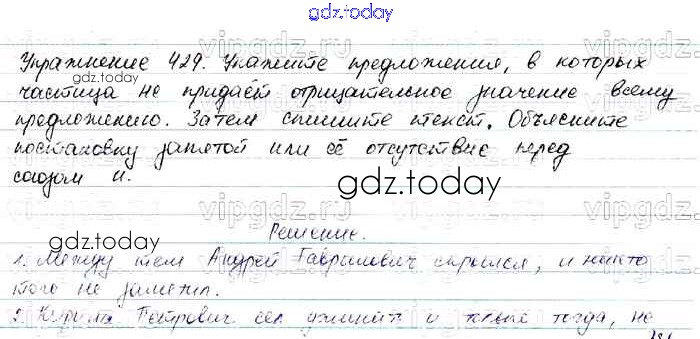 gdz.today
Упражнение 429. Укажите предложения, в которых
частица не придаёт отрицательное значение всему
предложению. Затем спишите текст. Объясните
постановку запятой или её отсутствие перед
союзом и.
Решение.
1. Между тем Андрей Гаврилович скрылся, и никто
того не заметил.
2. Кирила Петрович сел ужинать и только тогда, не
vipgdz.ru
gdz.today
gdz.today
gdz.today